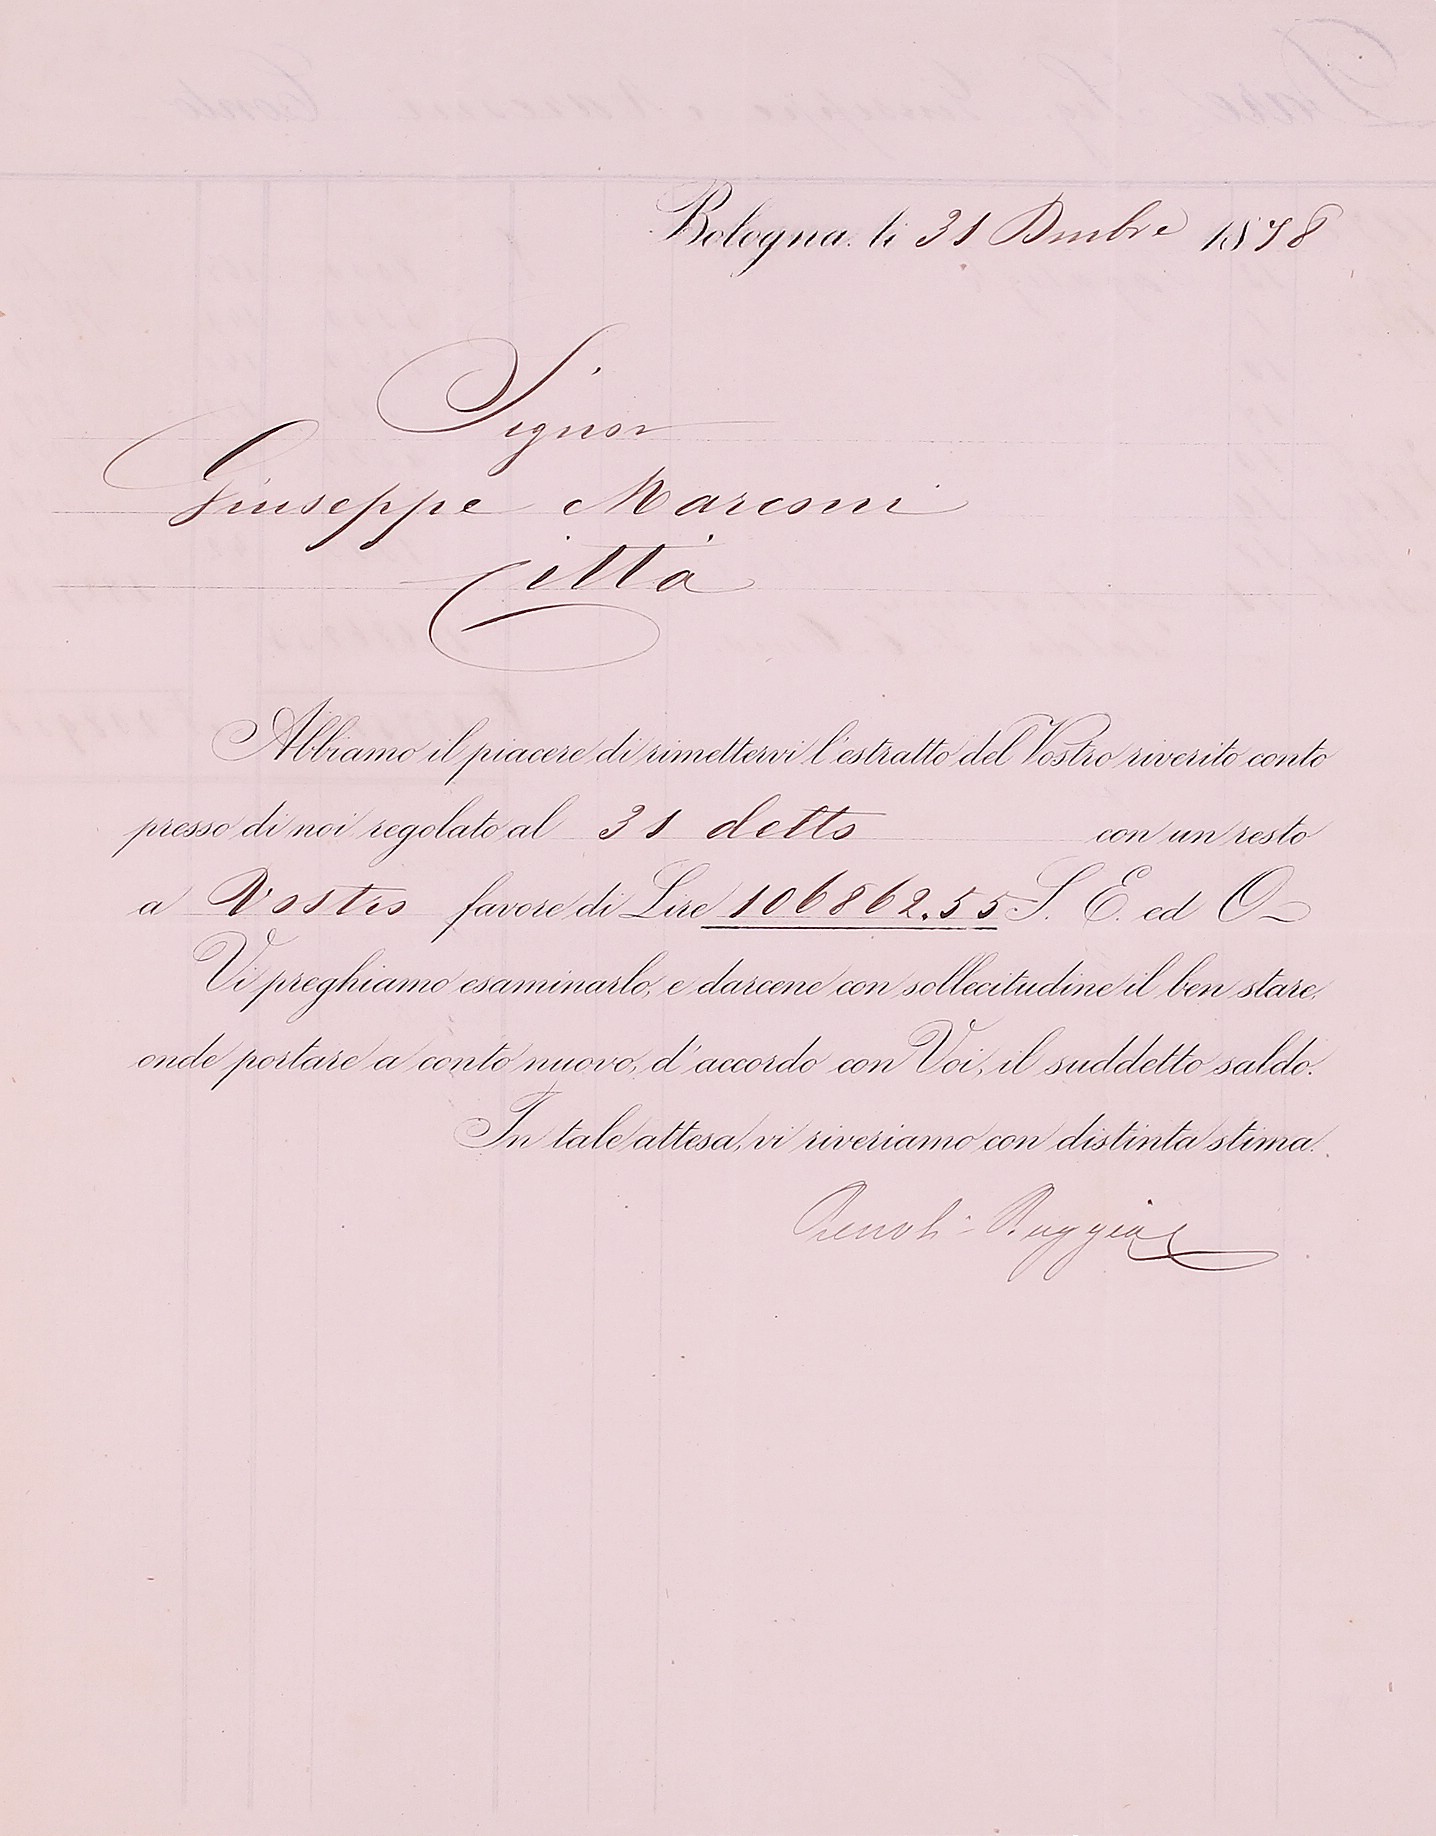 Bologna. li 31 Dmbre 1878
Signor
Giuseppe Marconi
Città
Abbiamo il piacere di rimettervi l'estratto del Vostro riverito conto
presso di noi regolato al 31 detto con un resto
a Vostro favore di Lire 106862.55 S. E. ed O
Vi preghiamo esaminarlo, e darcene con sollecitudine il ben stare,
onde portare a conto nuovo, d'accordo con Voi, il suddetto saldo.
In tale attesa, vi riveriamo con distinta stima.